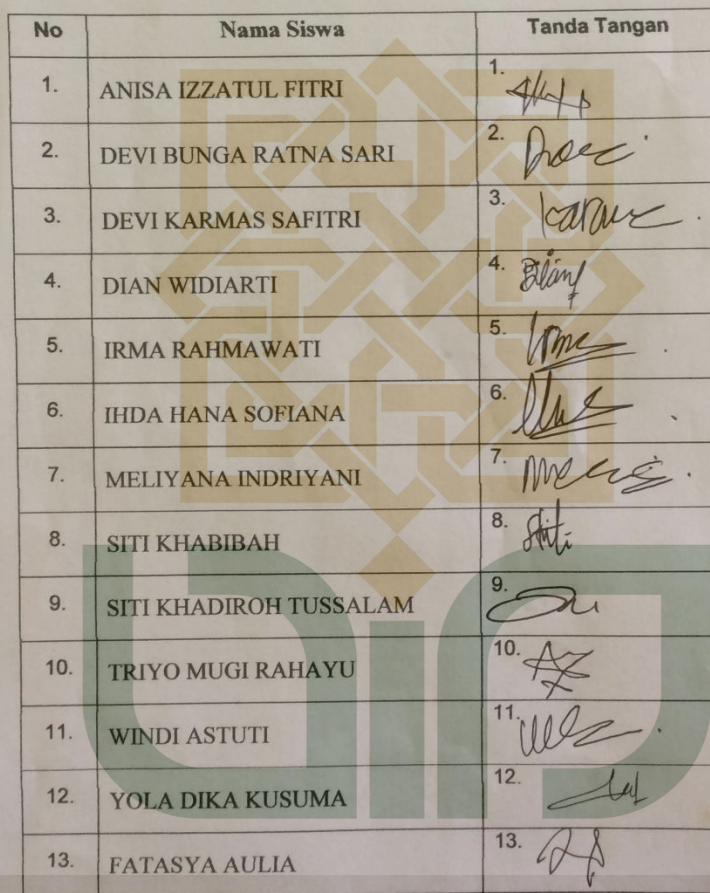 No Nama Siswa Tanda Tangan
1. ANISA IZZATUL FITRI 1.
2. DEVI BUNGA RATNA SARI 2.
3. DEVI KARMAS SAFITRI 3.
4. DIAN WIDIARTI 4.
5. IRMA RAHMAWATI 5.
6. IHDA HANA SOFIANA 6.
7. MELIYANA INDRIYANI 7.
8. SITI KHABIBAH 8.
9. SITI KHADIROH TUSSALAM 9.
10. TRIYO MUGI RAHAYU 10.
11. WINDI ASTUTI 11.
12. YOLA DIKA KUSUMA 12.
13. FATASYA AULIA 13.